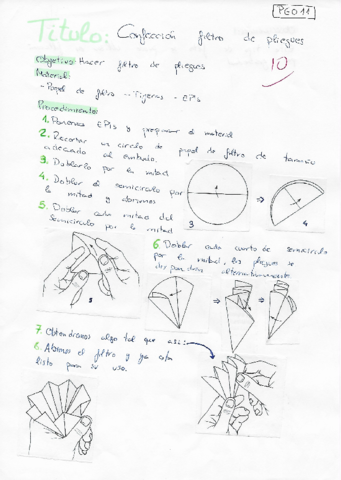 PEO11
Título: Confección filtro de pliegues
10
Objetivo: Hacer filtro de pliegues
Material:
- Papel de filtro - Tijeras - EPIs
Procedimiento:
1. Ponernos EPIs y preparar el material
2. Recortar un círculo de papel de filtro de tamaño
adecuado al embudo.
3. Doblarlo por la mitad
4. Doblar el semicírculo por
la mitad y abrimos
5. Doblar cada mitad del
semicírculo por la mitad
3
4
5
6. Doblar cada cuarto de semicírculo
por la mitad, los pliegues se
dispondrán alternativamente.
7. Obtendremos algo tal que así:
8. Abrimos el filtro y ya está
listo para su uso.